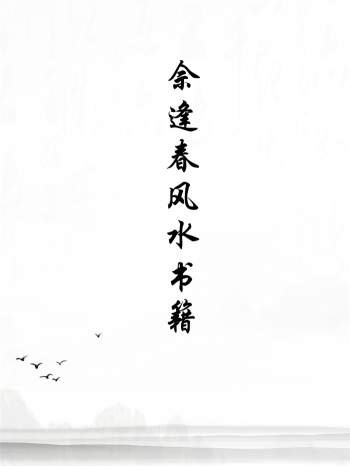 佘逢春风水书籍